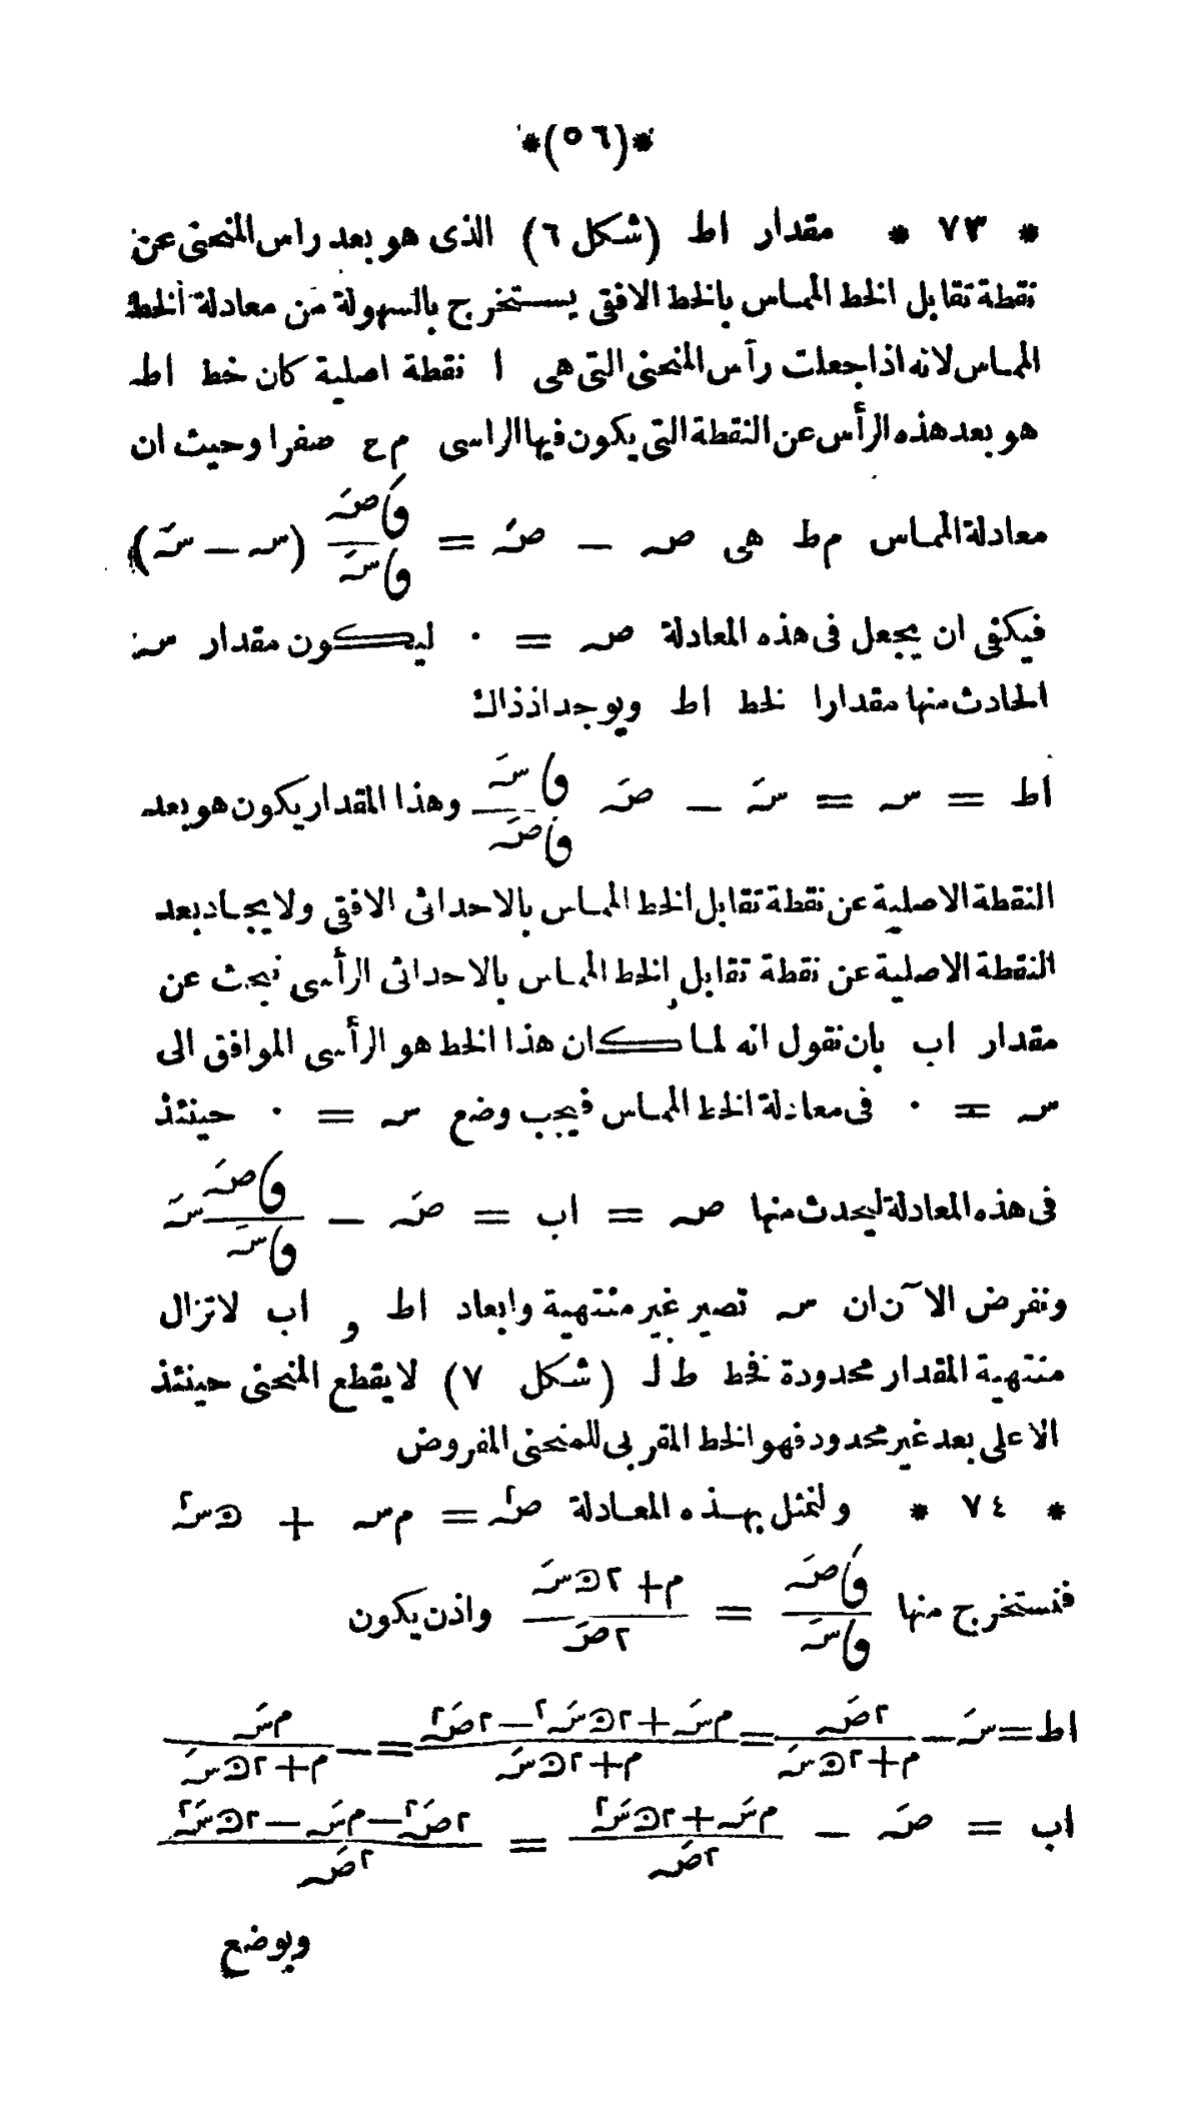 *(٥٦)*
* ٧٣ * مقدار اط (شكل ٦) الذى هو بعد راس المنحنى عن
نقطة تقابل الخط المماس بالخط الافقى يستخرج بالسهولة من معادلة الخط
المماس لانه اذا جعلت رأس المنحنى التى هى ا نقطة اصلية كان خط اط
هو بعد هذه الرأس عن النقطة التى يكون فيها الراسى م ح صفرا وحيث ان
معادلة المماس م ط هى صـ − صَـ = وَصَـ/وَسَـ (سـ − سَـ)
فيكفى ان يجعل فى هذه المعادلة صـ = ٠ ليكون مقدار سـ
الحادث منها مقدارا لخط اط ويوجد اذ ذاك
اط = سـ = سَـ − صَـ وَسَـ/وَصَـ وهذا المقدار يكون هو بعد
النقطة الاصلية عن نقطة تقابل الخط المماس بالاحداثى الافقى ولايجاد بعد
النقطة الاصلية عن نقطة تقابل الخط المماس بالاحداثى الرأسى نبحث عن
مقدار اب بان نقول انه لما كان هذا الخط هو الرأسى الموافق الى
سـ = ٠ فى معادلة الخط المماس فيجب وضع سـ = ٠ حينئذ
فى هذه المعادلة ليحدث منها صـ = اب = صَـ − وَصَـ/وَسَـ سَـ
ونفرض الآن ان سـ تصير غير منتهية وابعاد اط و اب لاتزال
منتهية المقدار محدودة فخط ط لـ (شكل ٧) لا يقطع المنحنى حينئذ
الا على بعد غير محدود فهو الخط المقربى للمنحنى المفروض
* ٧٤ * ولنمثل بهذه المعادلة صـ٢ = م سـ + ﻫ سـ٢
فنستخرج منها وَصَـ/وَسَـ = م+٢ﻫسَـ/٢صَـ واذن يكون
اط = سَـ − ٢صَـ٢/م+٢ﻫسَـ = مسَـ+٢ﻫسَـ٢−٢صَـ٢/م+٢ﻫسَـ = − مسَـ/م+٢ﻫسَـ
اب = صَـ − مسَـ+٢ﻫسَـ٢/٢صَـ = ٢صَـ٢−مسَـ−٢ﻫسَـ٢/٢صَـ
وبوضع